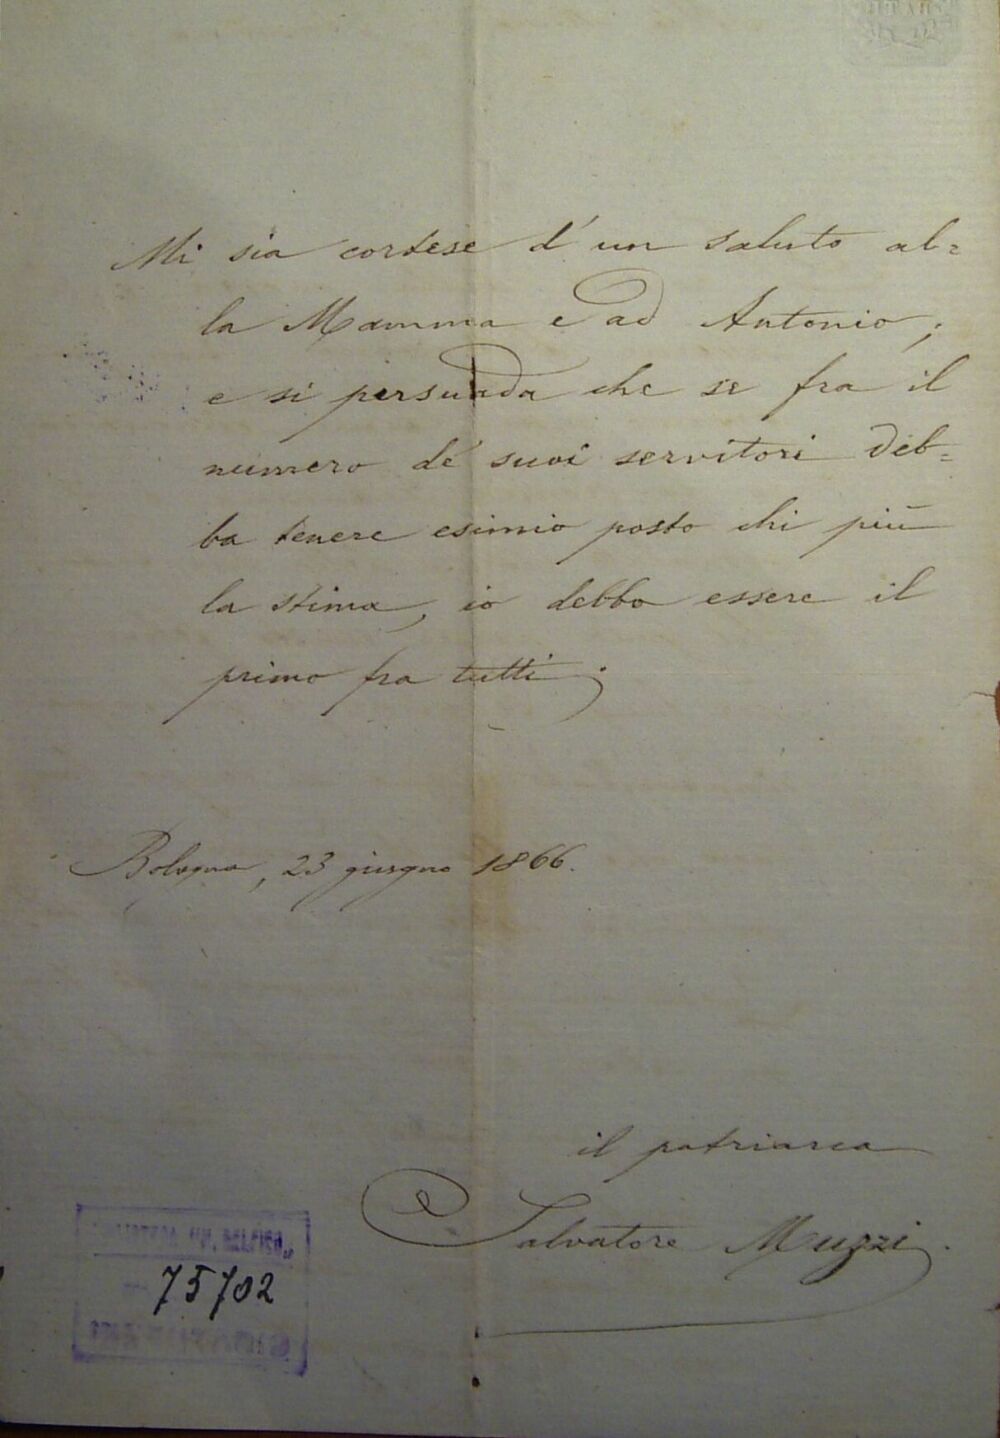 Mi sia cortese d'un saluto al=
la Mamma e ad Antonio;
e si persuada che se fra il
numero de' suoi servitori deb=
ba tenere esimio posto chi più
la stima, io debbo essere il
primo fra tutti.
Bologna, 23 giugno 1866.
il patriarca
Salvatore Muzzi.
DELFICO
75702